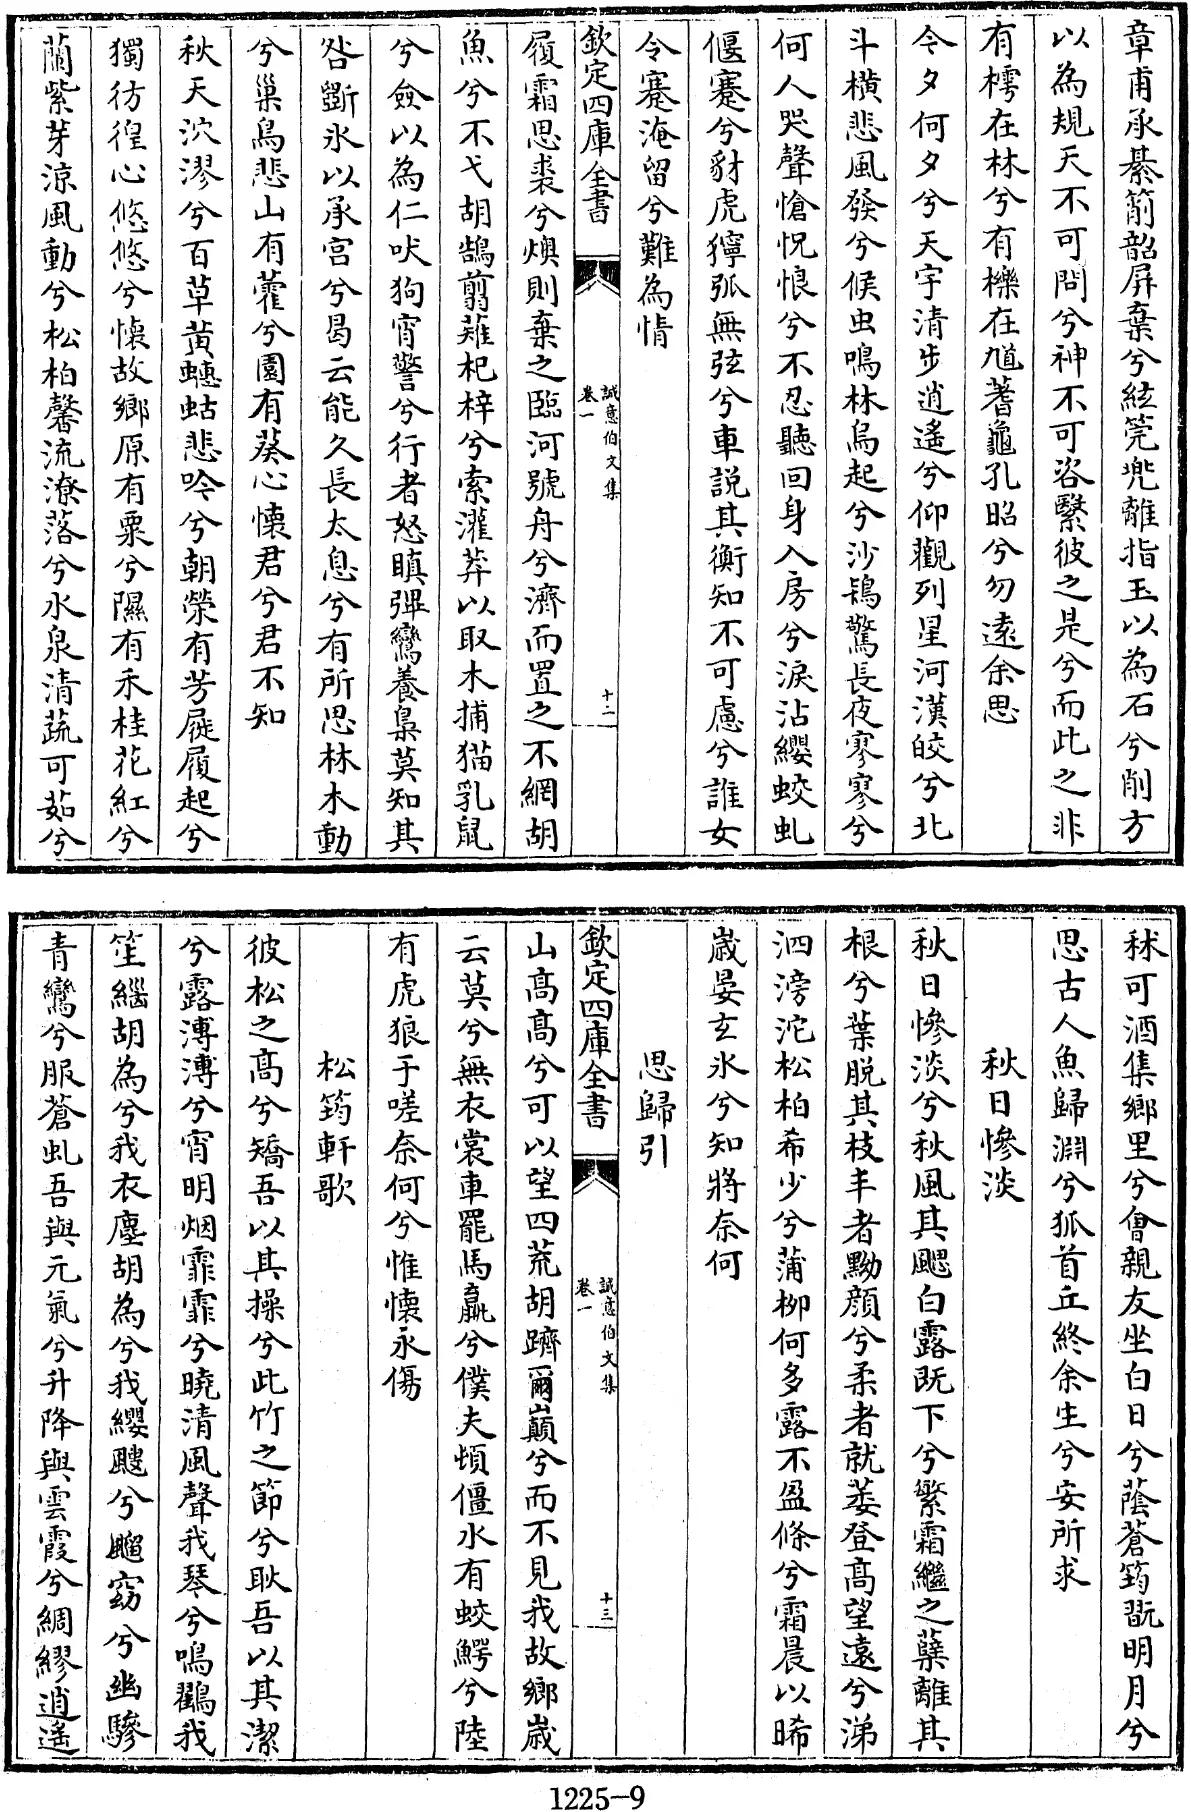 章甫承綦箾韶屏棄兮絃筦兜離指玉以為石兮削方
以為規天不可問兮神不可咨繄彼之是兮而此之非
有樗在林兮有櫟在馗蓍龜孔昭兮勿遠余思
今夕何夕兮天宇清步逍遙兮仰觀列星河漢皎兮北
斗横悲風發兮候虫鳴林烏起兮沙鴇驚長夜寥寥兮
何人哭聲愴怳悢兮不忍聽回身入房兮淚沾纓蛟虬
偃蹇兮豺虎獰弧無弦兮車説其衡知不可慮兮誰女
令蹇淹留兮難為情
欽定四庫全書
誠意伯文集
卷一
十二
履霜思裘兮燠則棄之臨河號舟兮濟而置之不網胡
魚兮不弋胡鵠翦薙杞梓兮索灌莽以取木捕猫乳鼠
兮僉以為仁吠狗宵警兮行者怒瞋彈鸞養梟莫知其
咎斵氷以承宫兮曷云能久長太息兮有所思林木動
兮巢鳥悲山有藿兮園有葵心懷君兮君不知
秋天泬漻兮百草黄蟪蛄悲吟兮朝榮有芳屣履起兮
獨彷徨心悠悠兮懷故鄉原有粟兮隰有禾桂花紅兮
蘭紫芽涼風動兮松柏馨流潦落兮水泉清蔬可茹兮
秫可酒集鄉里兮會親友坐白日兮蔭蒼筠翫明月兮
思古人魚歸淵兮狐首丘終余生兮安所求
秋日慘淡
秋日慘淡兮秋風其颸白露既下兮繁霜繼之蘖離其
根兮葉脱其枝丰者黝顔兮柔者就萎登髙望遠兮涕
泗滂沱松柏希少兮蒲柳何多露不盈條兮霜晨以晞
歳晏玄氷兮知將奈何
思歸引
欽定四庫全書
誠意伯文集
卷一
十三
山髙髙兮可以望四荒胡躋爾巔兮而不見我故鄉歳
云莫兮無衣裳車罷馬羸兮僕夫頓僵水有蛟鰐兮陸
有虎狼于嗟奈何兮惟懷永傷
松筠軒歌
彼松之髙兮矯吾以其操兮此竹之節兮耿吾以其潔
兮露漙漙兮宵明烟霏霏兮曉清風聲我琴兮鳴鸛我
笙緇胡為兮我衣塵胡為兮我纓飀兮飅窈兮幽驂
青鸞兮服蒼虬吾與元氣兮升降與雲霞兮綢繆逍遙
1225-9